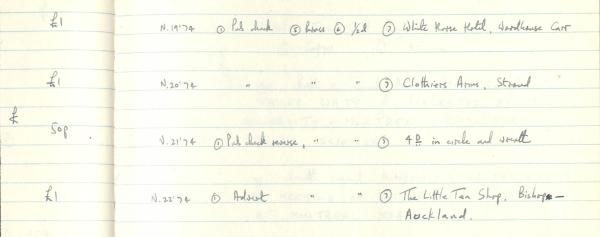 £1 N.19'74 ① Pub check ⑤ brass ⑥ 1½d ⑦ White Horse Hotel, Wardhouse Carr
£1 N.20'74 " " " ⑦ Clothiers Arms, Stroud
£
50p. N.21'74 ① Pub check reverse, " " ⑦ 4D in circle and wreath
£1 N.22'74 ① Advert " " ⑦ The Little Tea Shop, Bishop-
Auckland.